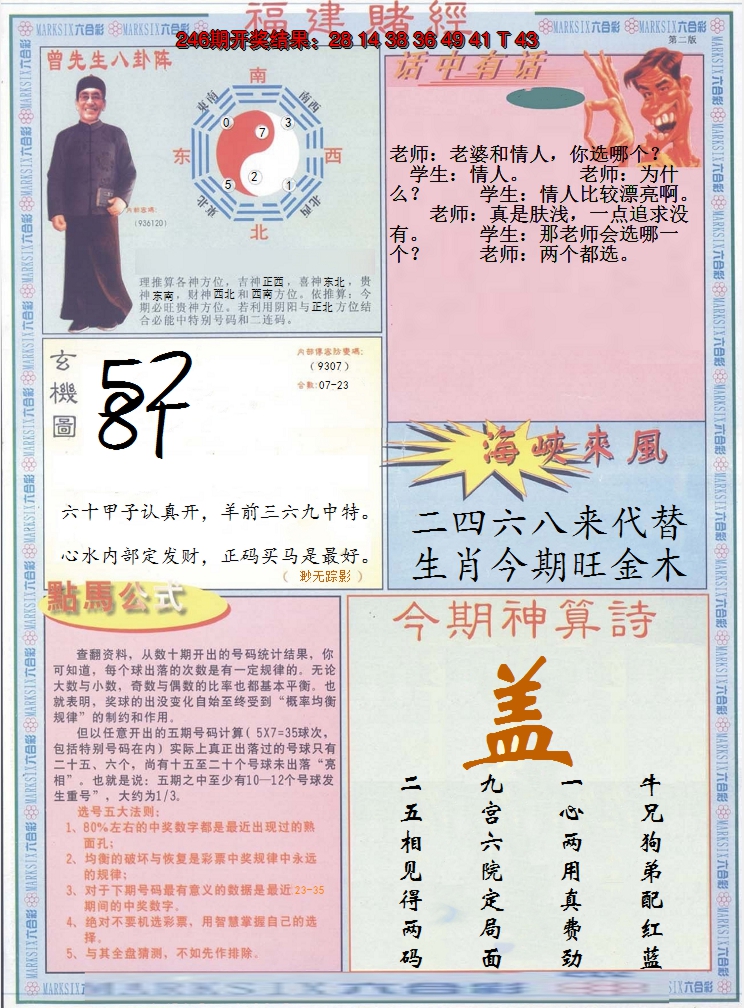 福建賭經
MARKSIX六合彩 MARKSIX六合彩 MARKSIX六合彩 MARKSIX六合彩
246期开奖结果：28 14 38 36 49 41 T 43
第二版
曾先生八卦阵
南
东南
南西
东
西
东北
北西
北
0
7
3
5
2
1
内部密碼:
(936120)
理推算各神方位，吉神正西，喜神东北，贵
神东南，财神西北和西南方位。依推算：今
期必旺贵神方位。若利用阴阳与正北方位结
合必能中特别号码和二连码。
话中有话
老师：老婆和情人，你选哪个？
学生：情人。 老师：为什
么？ 学生：情人比较漂亮啊。
老师：真是肤浅，一点追求没
有。 学生：那老师会选哪一
个？ 老师：两个都选。
玄機圖
57
8T
(9307)
合數:07-23
六十甲子认真开，羊前三六九中特。
心水内部定发财，正码买马是最好。
（ 聊无踪影 ）
海峽來風
二四六八来代替
生肖今期旺金木
點馬公式
查翻资料，从数十期开出的号码统计结果，你
可知道，每个球出落的次数是有一定规律的。无论
大数与小数，奇数与偶数的比率也都基本平衡。也
就表明，奖球的出没变化自始至终受到“概率均衡
规律”的制约和作用。
但以任意开出的五期号码计算( 5X7=35球次，
包括特别号码在内) 实际上真正出落过的号球只有
二十五、六个，尚有十五至二十个号球未出落“亮
相”。也就是说：五期之中至少有10—12个号球发
生重号”，大约为1/3。
选号五大法则：
1、80%左右的中奖数字都是最近出现过的熟
面孔；
2、均衡的破坏与恢复是彩票中奖规律中永远
的规律；
3、对于下期号码最有意义的数据是最近23-35
期间的中奖数字。
4、绝对不要机选彩票，用智慧掌握自己的选
择。
5、与其全盘猜测，不如先作排除。
今期神算詩
盖
牛兄狗弟配红蓝
一心两用真费劲
九宫六院定局面
二五相见得两码